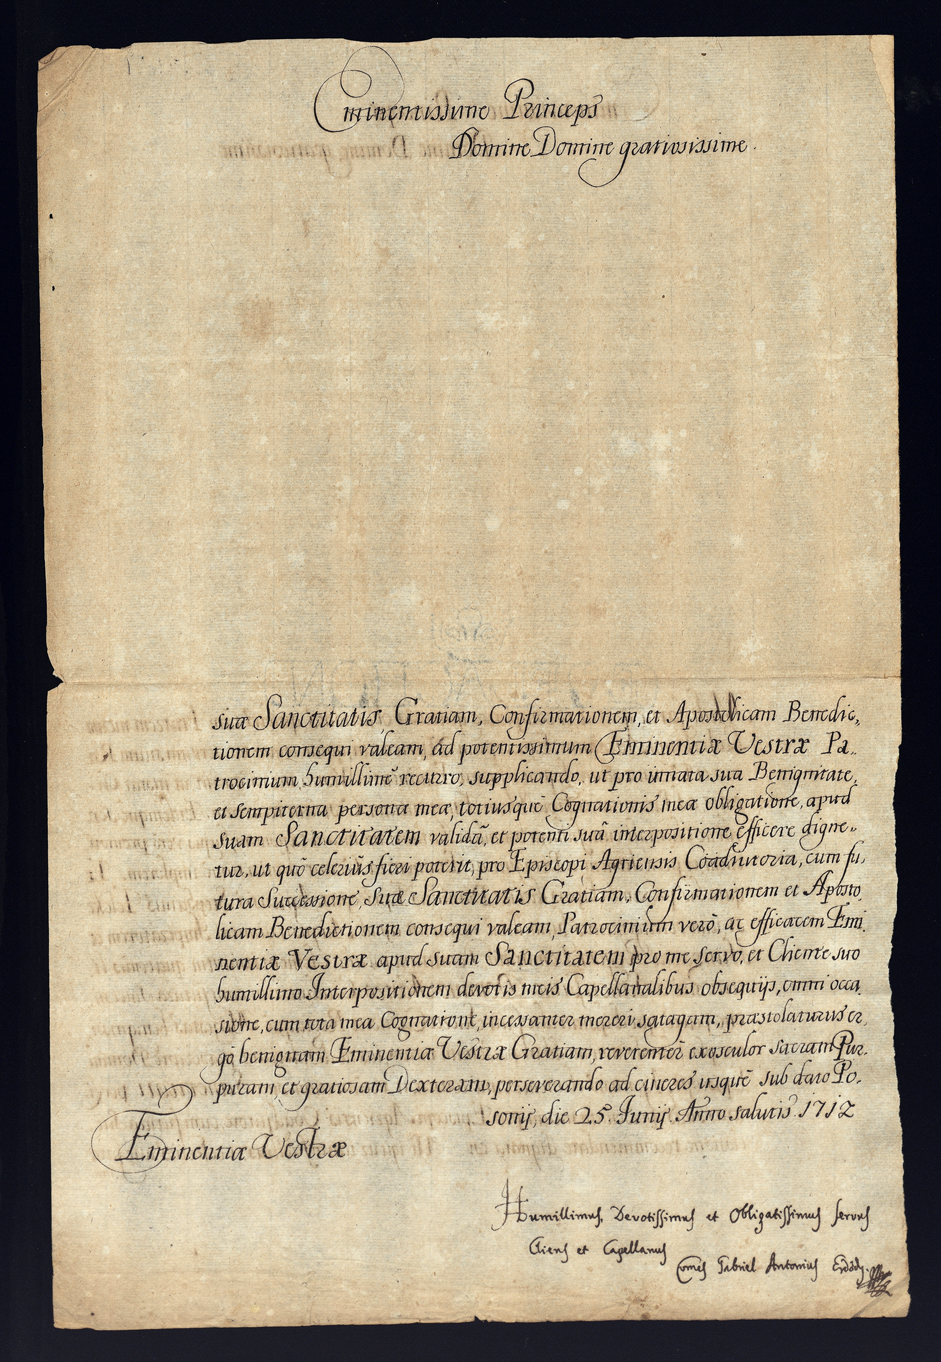 Eminentissime Princeps
Domine Domine gratiosissime.
suæ Sanctitatis Gratiam, Confirmationem, et Apostolicam Benedic,
tionem consequi valeam, ad potentissimum Eminentiæ Vestræ Pa-
trocinium humillimè recurro, supplicando, ut pro innata sua Benignitate,
et sempiterna persona mea, totiusque Cognationis meæ obligatione, apud
suam Sanctitatem validâ, et potenti suâ interpositione efficere digne-
tur, ut quò celeriùs fieri poterit, pro Episcopi Agriensis Coadiutoria, cum fu,
tura Successione, suæ Sanctitatis Gratiam, Confirmationem et Aposto
licam Benedictionem consequi valeam, Patrocinium verò, ac efficacem Emi,
nentiæ Vestræ apud suam Sanctitatem pro me servo, et Cliente suo
humillimo Interpositionem devotis meis Capellanalibus obsequijs, omni occa,
sione, cum tota mea Cognatione, incessanter mereri satagam, præstolaturus er,
gò benignam Eminentiæ Vestræ Gratiam, reverenter exosculor sacram Pur-
puram, et gratiosam Dexteram, perseverando ad cineres usquè sub dato Po-
sonij, die 25. Junij Anno salutis 1712
Eminentiæ Vestræ
Humillimus, Devotissimus et Obligatissimus servus
Cliens et Capellanus
Comes Gabriel Antonius Erdődy.